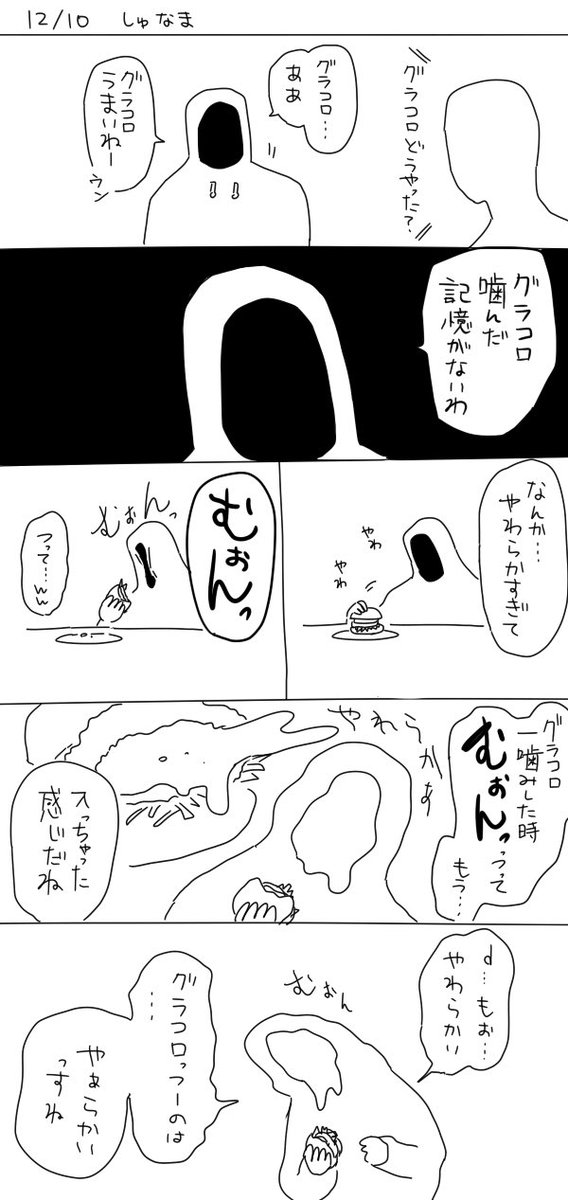 12/10 しゅなま
グラコロどうやった?
グラコロ…
ああ
グラコロ
うまいねー
ウン
グラコロ
噛んだ
記憶がないわ
なんか…
やわらかすぎて
やわ
やわ
むぉんっ
むぉんっ
って…ww
グラコロ
一噛みした時
むぉんっっって
もう…
やわらかぁ
入っちゃった
感じだね
d…もぉ…
やわらかい
むぉん
グラコロっつーのは
…
やぁらかい
っすね